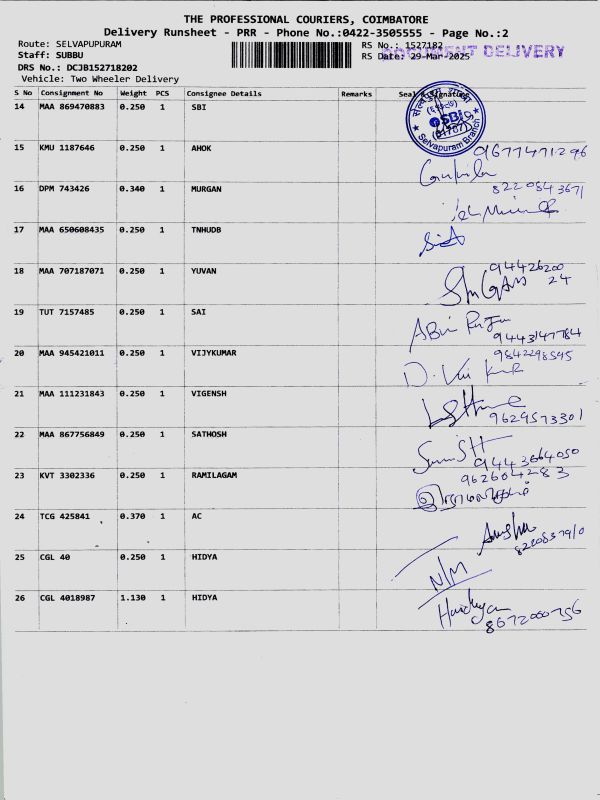 THE PROFESSIONAL COURIERS, COIMBATORE
Delivery Runsheet - PRR - Phone No.:0422-3505555 - Page No.:2
Route: SELVAPUPURAM
RS No.: 1527182
DOCUMENT DELIVERY
Staff: SUBBU
RS Date: 29-Mar-2025
DRS No.: DCJB152718202
Vehicle: Two Wheeler Delivery
S No Consignment No Weight PCS Consignee Details Remarks Seal & Signature
14 MAA 869470883 0.250 1 SBI
SBI
Selvapuram Branch
15 KMU 1187646 0.250 1 AHOK 9677471296
16 DPM 743426 0.340 1 MURGAN 8220843671
17 MAA 650608435 0.250 1 TNHUDB
18 MAA 707187071 0.250 1 YUVAN 94426200
24
19 TUT 7157485 0.250 1 SAI
9443147784
20 MAA 945421011 0.250 1 VIJYKUMAR 9842298595
21 MAA 111231843 0.250 1 VIGENSH
9629573301
22 MAA 867756849 0.250 1 SATHOSH
9443664050
23 KVT 3302336 0.250 1 RAMILAGAM 962604283
24 TCG 425841 0.370 1 AC
25 CGL 40 0.250 1 HIDYA
N/M
26 CGL 4018987 1.130 1 HIDYA
8672000756